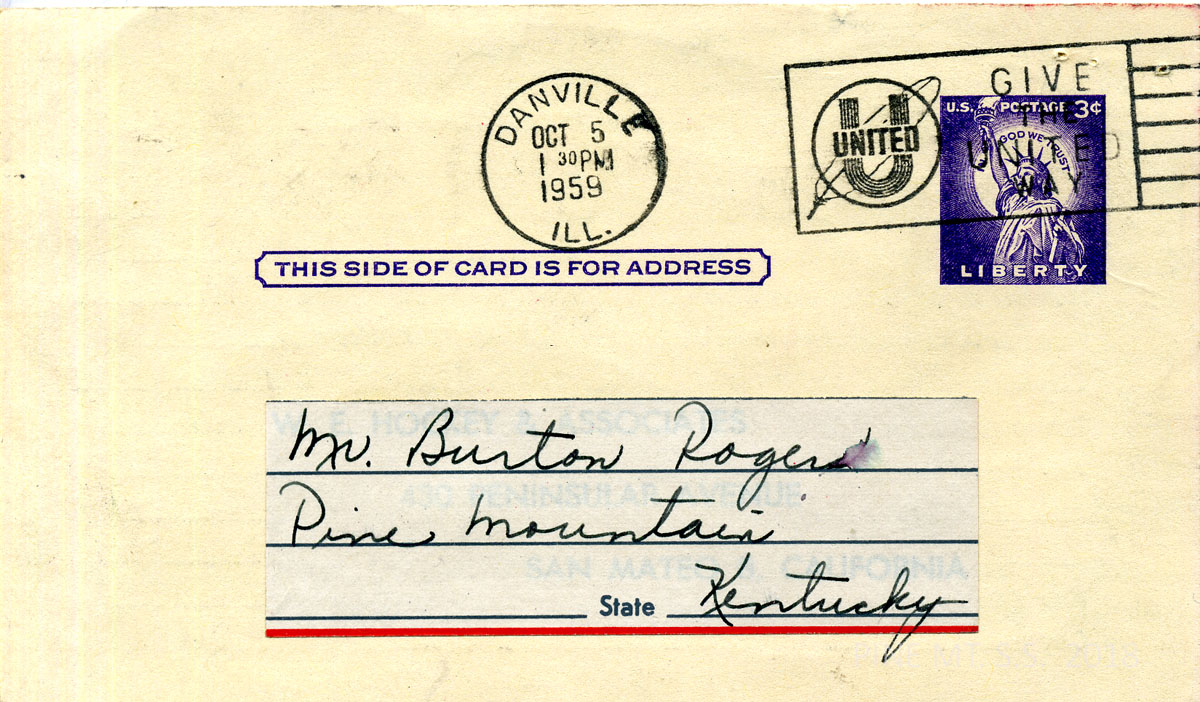 DANVILLE
OCT 5
1 30 PM
1959
ILL.
U
UNITED
GIVE
THE
UNITED
WAY
U.S. POSTAGE 3¢
IN GOD WE TRUST
LIBERTY
THIS SIDE OF CARD IS FOR ADDRESS
W. E. HOOLEY & ASSOCIATES
Mr. Burton Rogers
430 PENINSULAR AVENUE
Pine Mountain
SAN MATEO, CALIFORNIA
State Kentucky